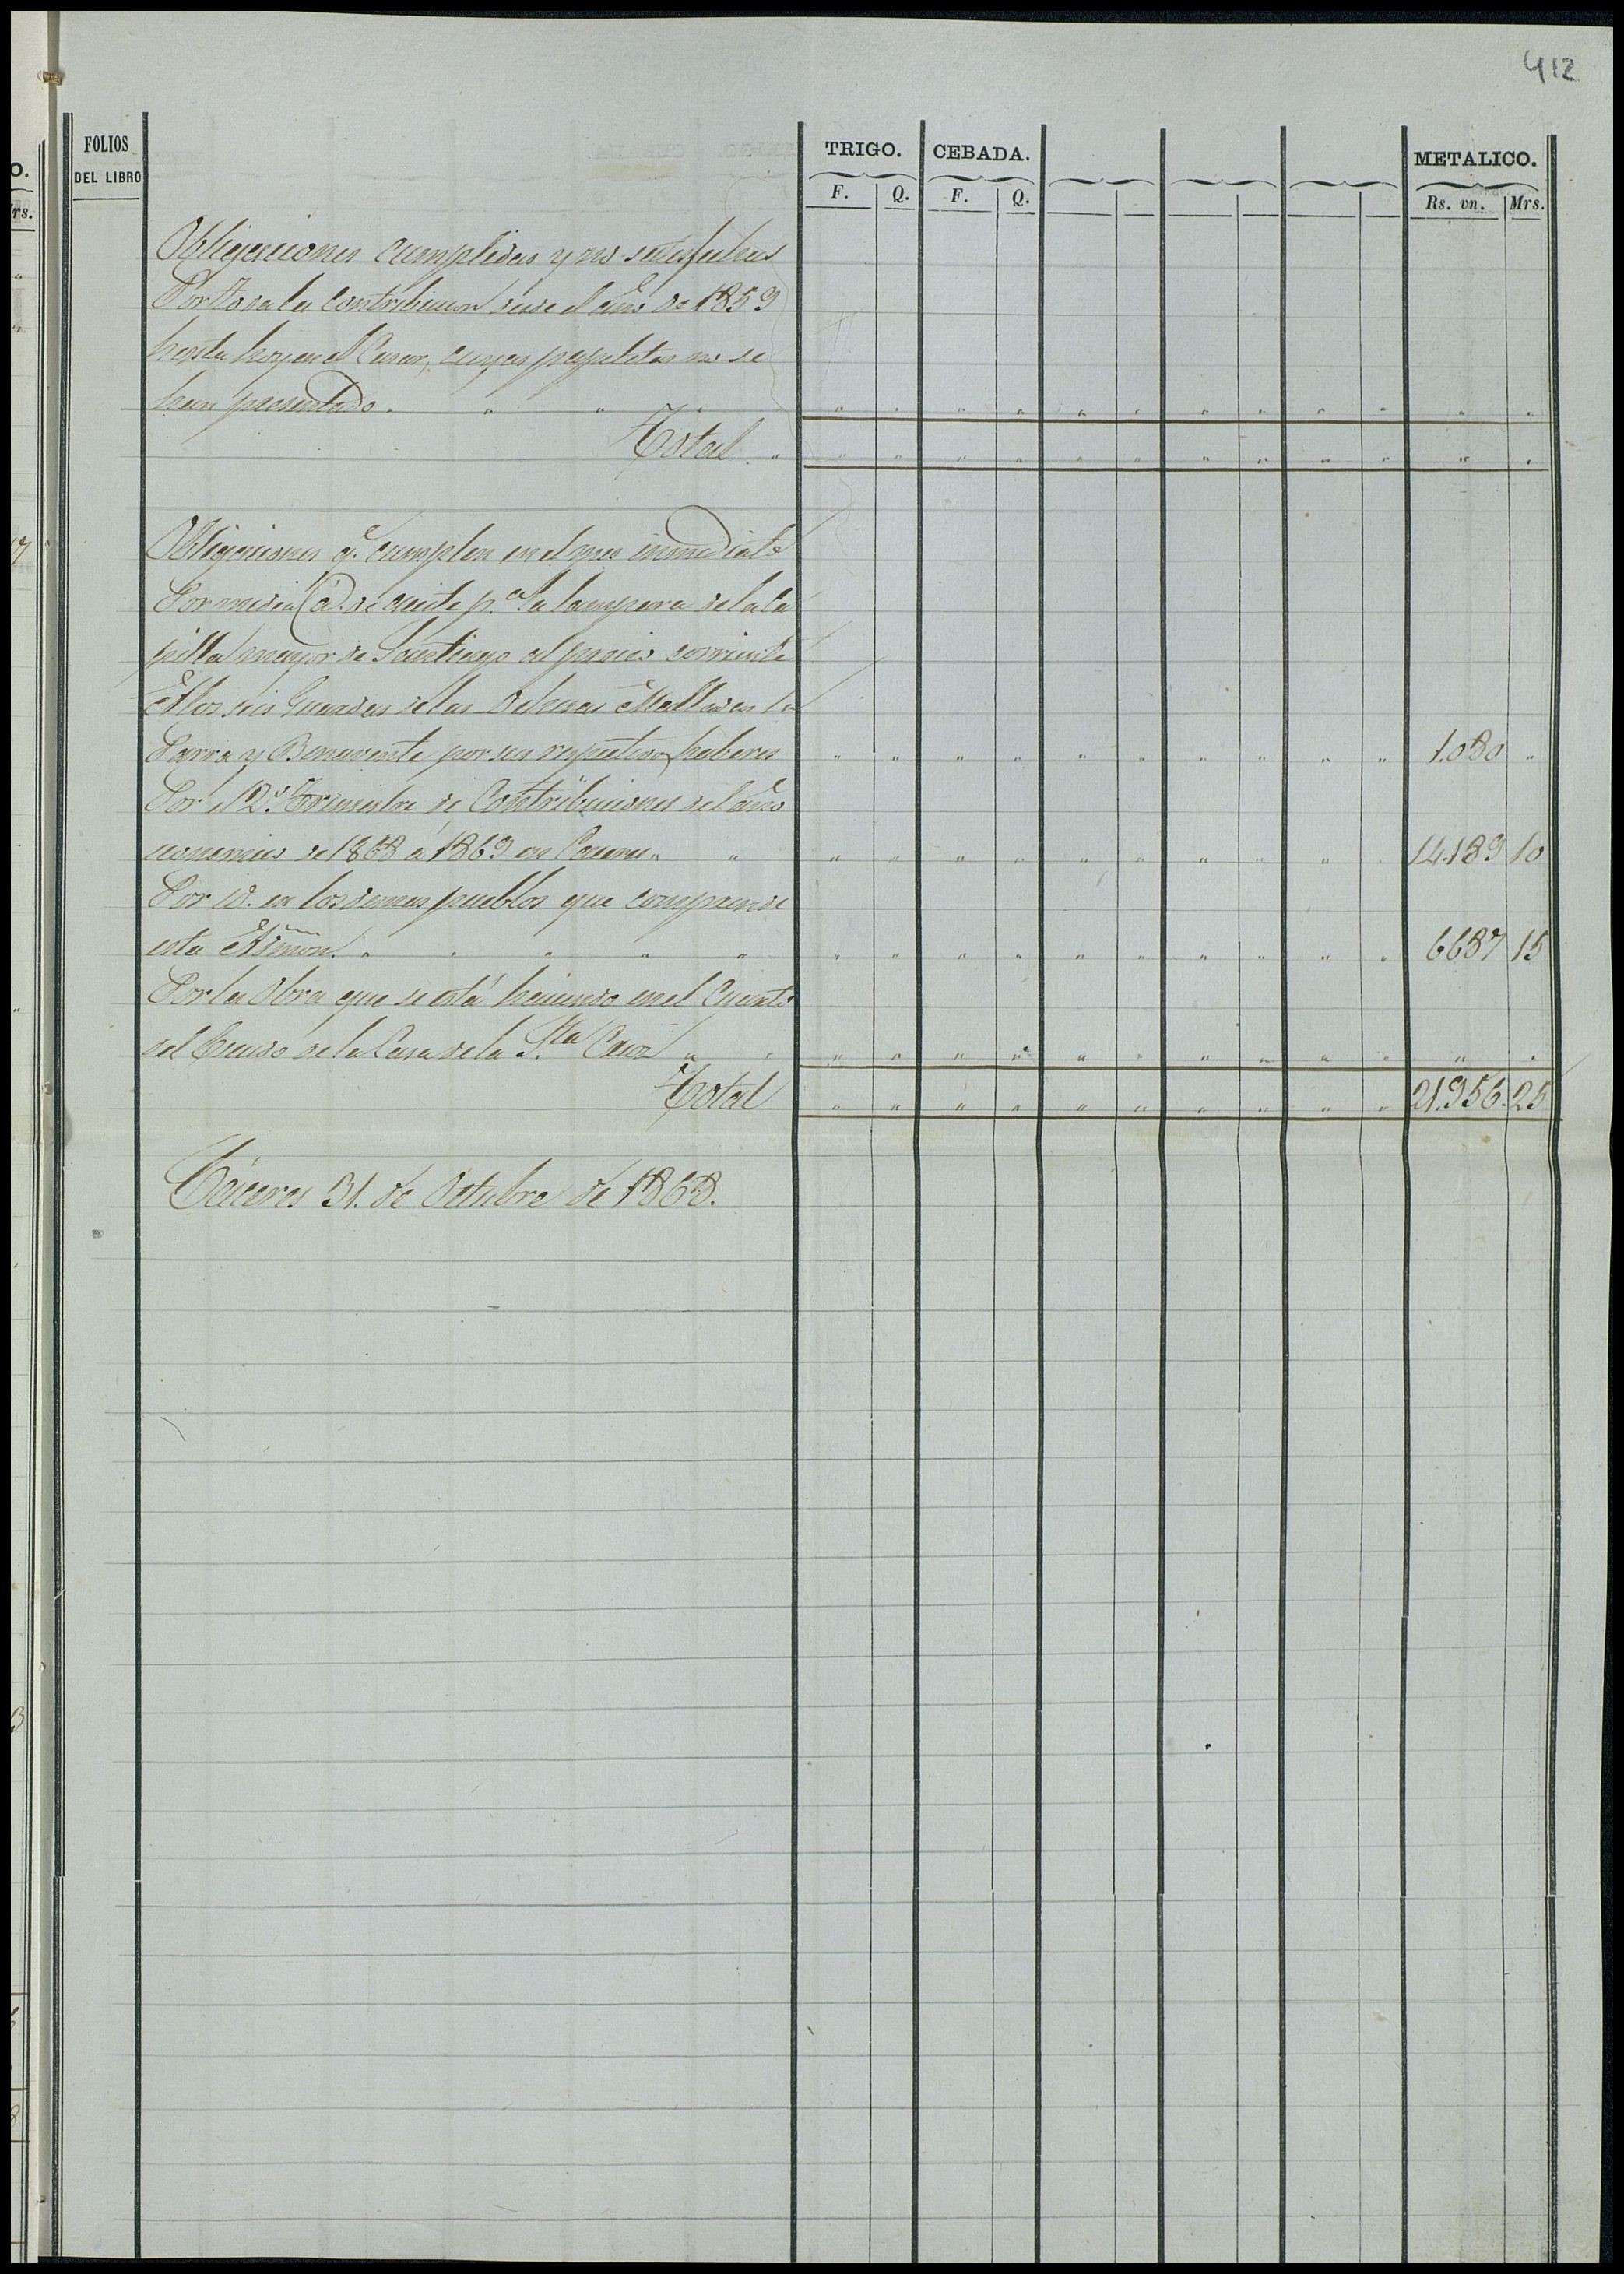 412
FOLIOS
DEL LIBRO
TRIGO. CEBADA. METALICO.
F. Q. F. Q. Rs. vn. Mrs.
Obligaciones cumplidas y no satisfechas
Por toda la contribucion desde el año de 1859
hasta hoy en el Casar, cuyas papeletas no se
han presentado. " " " " " " " " " " " " " " "
Total " " " " " " " " " " " " "
Obligaciones q.e cumplen en el mes inmediato
Por media @. de aceite p.a la lampara de la Ca
pilla mayor de Santiago al precio corriente
A los seis Guardas de las Dehesas Malladas la
Parra y Benavente por sus respectivos haberes " " " " " " " " " " 1.080 "
Por el 2.º Trimestre de Contribuciones del año
economico de 1868 á 1869 en Caceres " " " " " " " " " " " " 14.189 10
Por id. en los demas pueblos que comprende
esta Admon. " " " " " " " " " " " " " " " 6687 15
Por la Obra que se está haciendo en el Cuarto
del Criado de la Casa de la Sta Cruz " " " " " " " " " " " " " "
Total " " " " " " " " " " 21.956. 25
Cáceres 31. de Octubre de 1868.